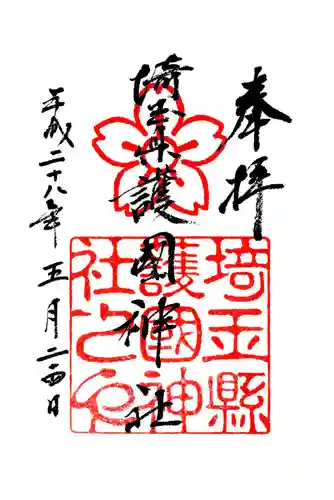 奉拝
埼玉県護國神社
平成二十八年五月二四日
埼玉縣
護國神
社之印